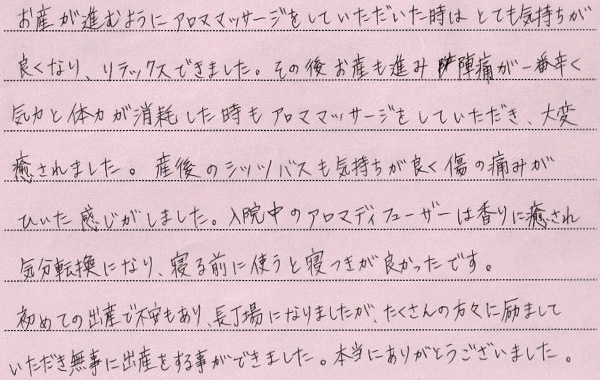 お産が進むようにアロママッサージをしていただいた時は とても気持ちが
良くなり、リラックスできました。その後お産も進み 陣痛が一番辛く
気力と体力が消耗した時もアロママッサージをしていただき、大変
癒されました。産後のシッツバスも気持ちが良く傷の痛みが
ひいた感じがしました。入院中のアロマディフューザーは香りに癒され
気分転換になり、寝る前に使うと寝つきが良かったです。
初めての出産で不安もあり、長丁場になりましたが、たくさんの方々に励まして
いただき無事に出産をする事ができました。本当にありがとうございました。